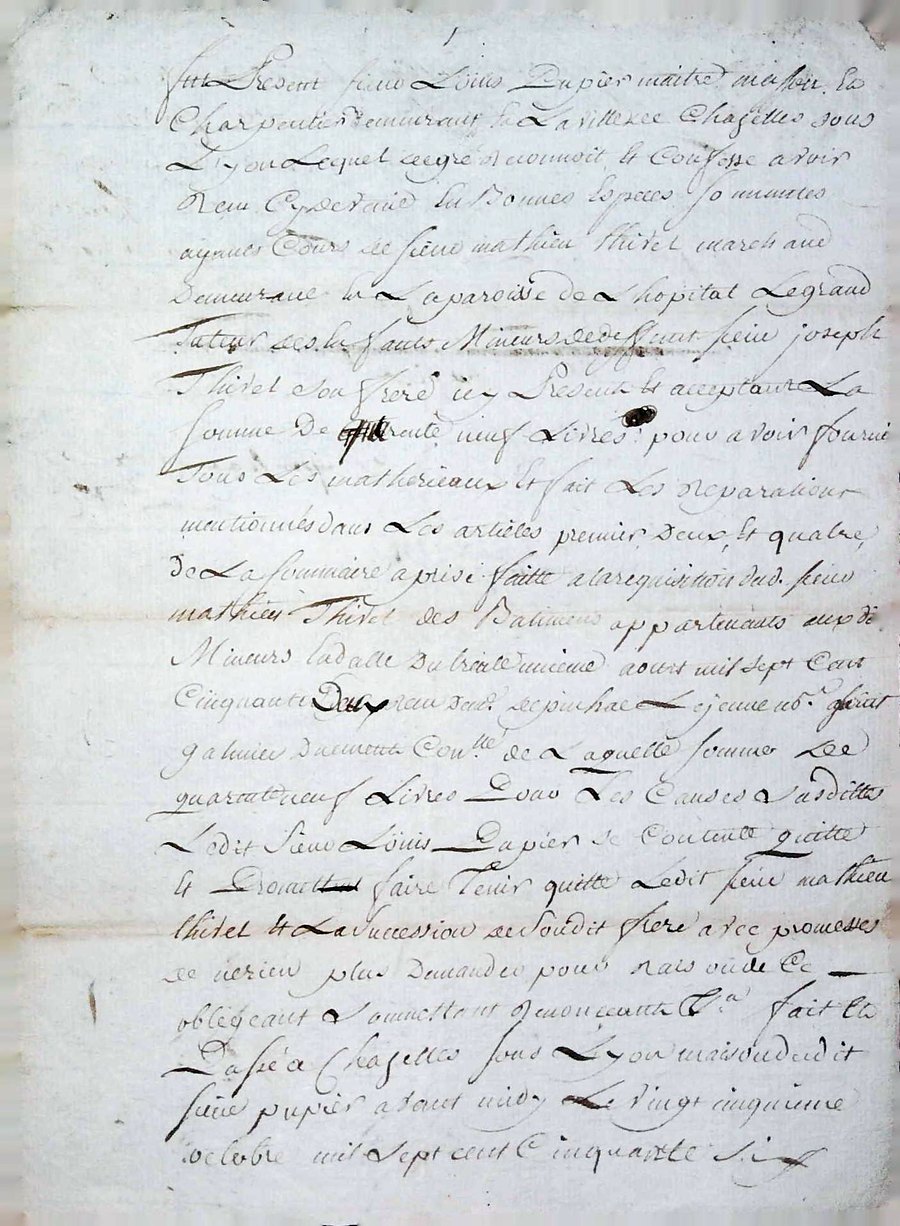 fut Present sieur Louis Pupier maitre masson et
Charpentier demeurant en La ville de Chazelles sous
Lyon Lequel de gré reconnoit et Confesse avoir
Receu Cydevant En Bonnes Especes sonnantes
ayants Cours de sieur mathieu thivel marchand
Demeurant en La paroisse de L'hopital Legrand
Tuteur des Enfants Mineurs de deffunt sieur joseph
Thivel son frere icy Present Et acceptant La
somme De quarante neuf Livres pour avoir fourni
Tous Les matherieaux Et fait Les Reparations
mentionnés dans Les articles premier, Deux, Et quatre
De La sommaire aprise faitte a la requisition dud. sieur
mathieu Thivel des Batiments appartenants auxd.
Mineurs En datte Du trente unieme aoust mil sept Cent
Cinquante Deux Lejeune
galmier Duement Con.llé de Laquelle somme de
quarante neuf Livres Pour Les Causes Susdittes
Ledit sieur Loüis Pupier se Contente quitte
Et Promet faire Tenir quitte Ledit sieur mathieu
thivel Et La Succession de Sondit frere avec promesses
de n'erien plus Demander pour raison de Ce
obligeant Soumettant Renonceant C.a fait Et
Passé a Chazelles sous Lyon maison dudit
sieur pupier avant midy Le vingt cinquieme
octobre mil sept cent Cinquante Six